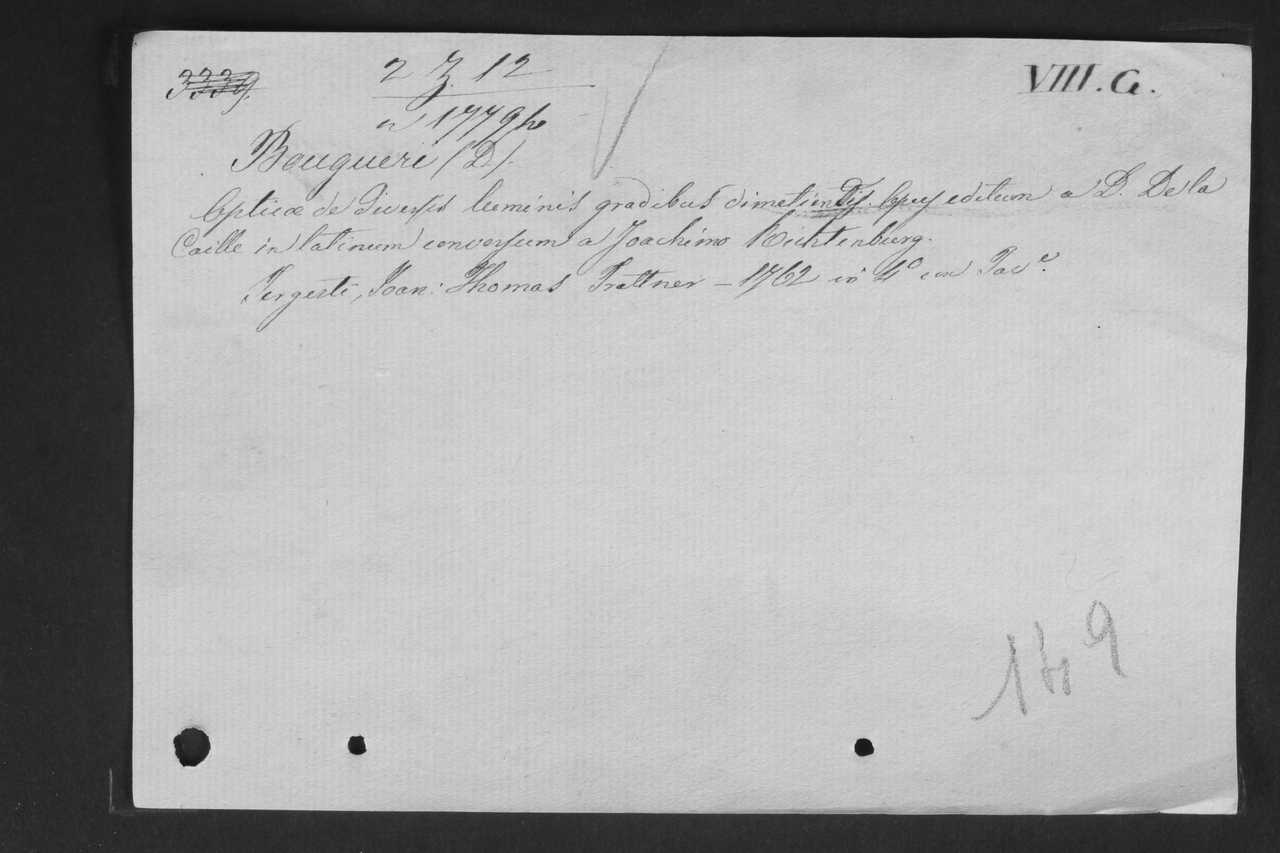 3339.
2 Z. 12
VIII. G.
Bougueri (D.).
Opticæ de Diversis luminis gradibus dimetiendis. Opus editum a D. De la
Caille in latinum conversum a Joachimo Richtenburg.
Tergesti, Joan: Thomas Trattner – 1762 in 4º